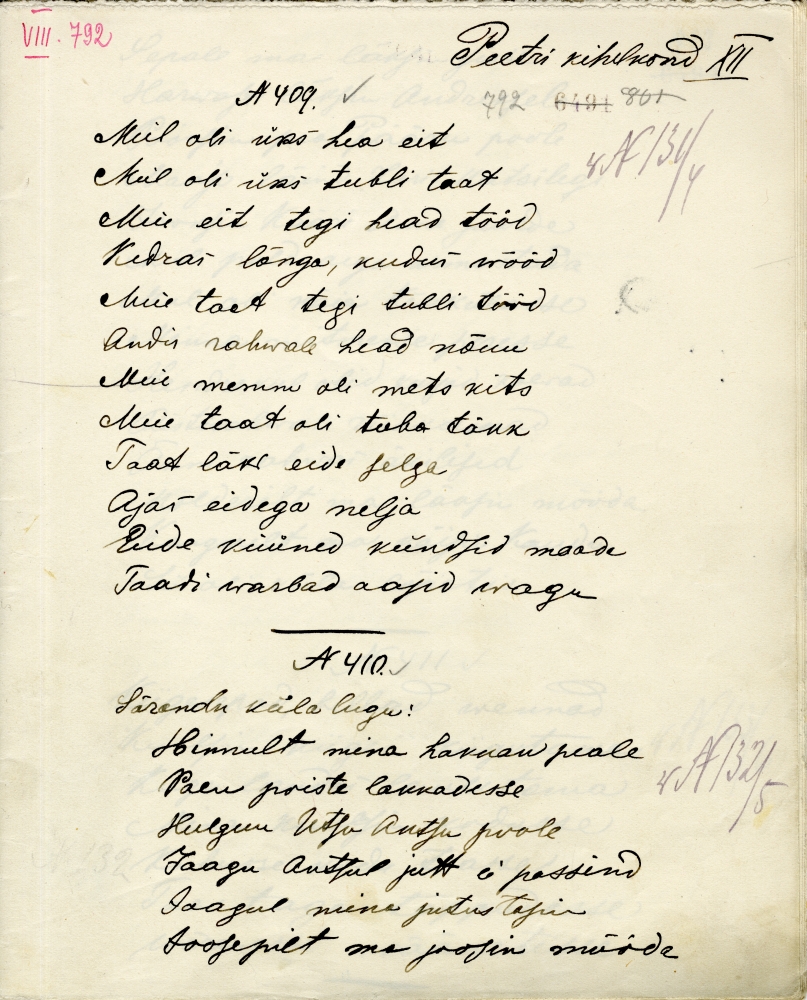 VIII. 792
Peetri kihelkond XII
№ 409. ✓
792 6434 801
Meil oli üks hea eit
Meil oli üks tubli taat
Meie eit tegi head tööd
Kedras lõnga, kudus wööd
Meie taat tegi tubli tööd
Andis rahwale head nõuu
Meie memme oli mets kits
Meie taat oli tuba täkk
Taat läks eide selga
Ajas eidega nelja
Eide küüned kündsid maada
Taadi warbad aasid wagu
№ 410. ✓
Särendu küla lugu:
Hinnult mina hakkan peale
Paen poiste lakkadesse
Hulgun Utsu Antsu poole
Jaagu Antsul jutt ei passind
Jaagul mina jutustasin
Joosepilt ma joosin mööda